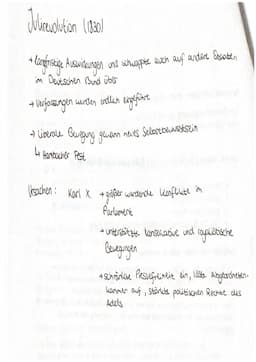 Julirevolution (1830)
→ langfristige Auswirkungen und schwappte auch auf andere Staaten
im Deutschen Bund über
→ Verfassungen wurden endlich eingeführt
→ Liberale Bewegung gewann neues Selbstbewusstsein
↳ Hambacher Fest
Ursachen: Karl X. → größer werdende Konflikte im
Parlament
→ unterstützte konservative und royalistische
Bewegungen
→ schränkte Pressefreiheit ein, löste Abgeordneten-
kammer auf, stärkte politischen Rechte des
Adels